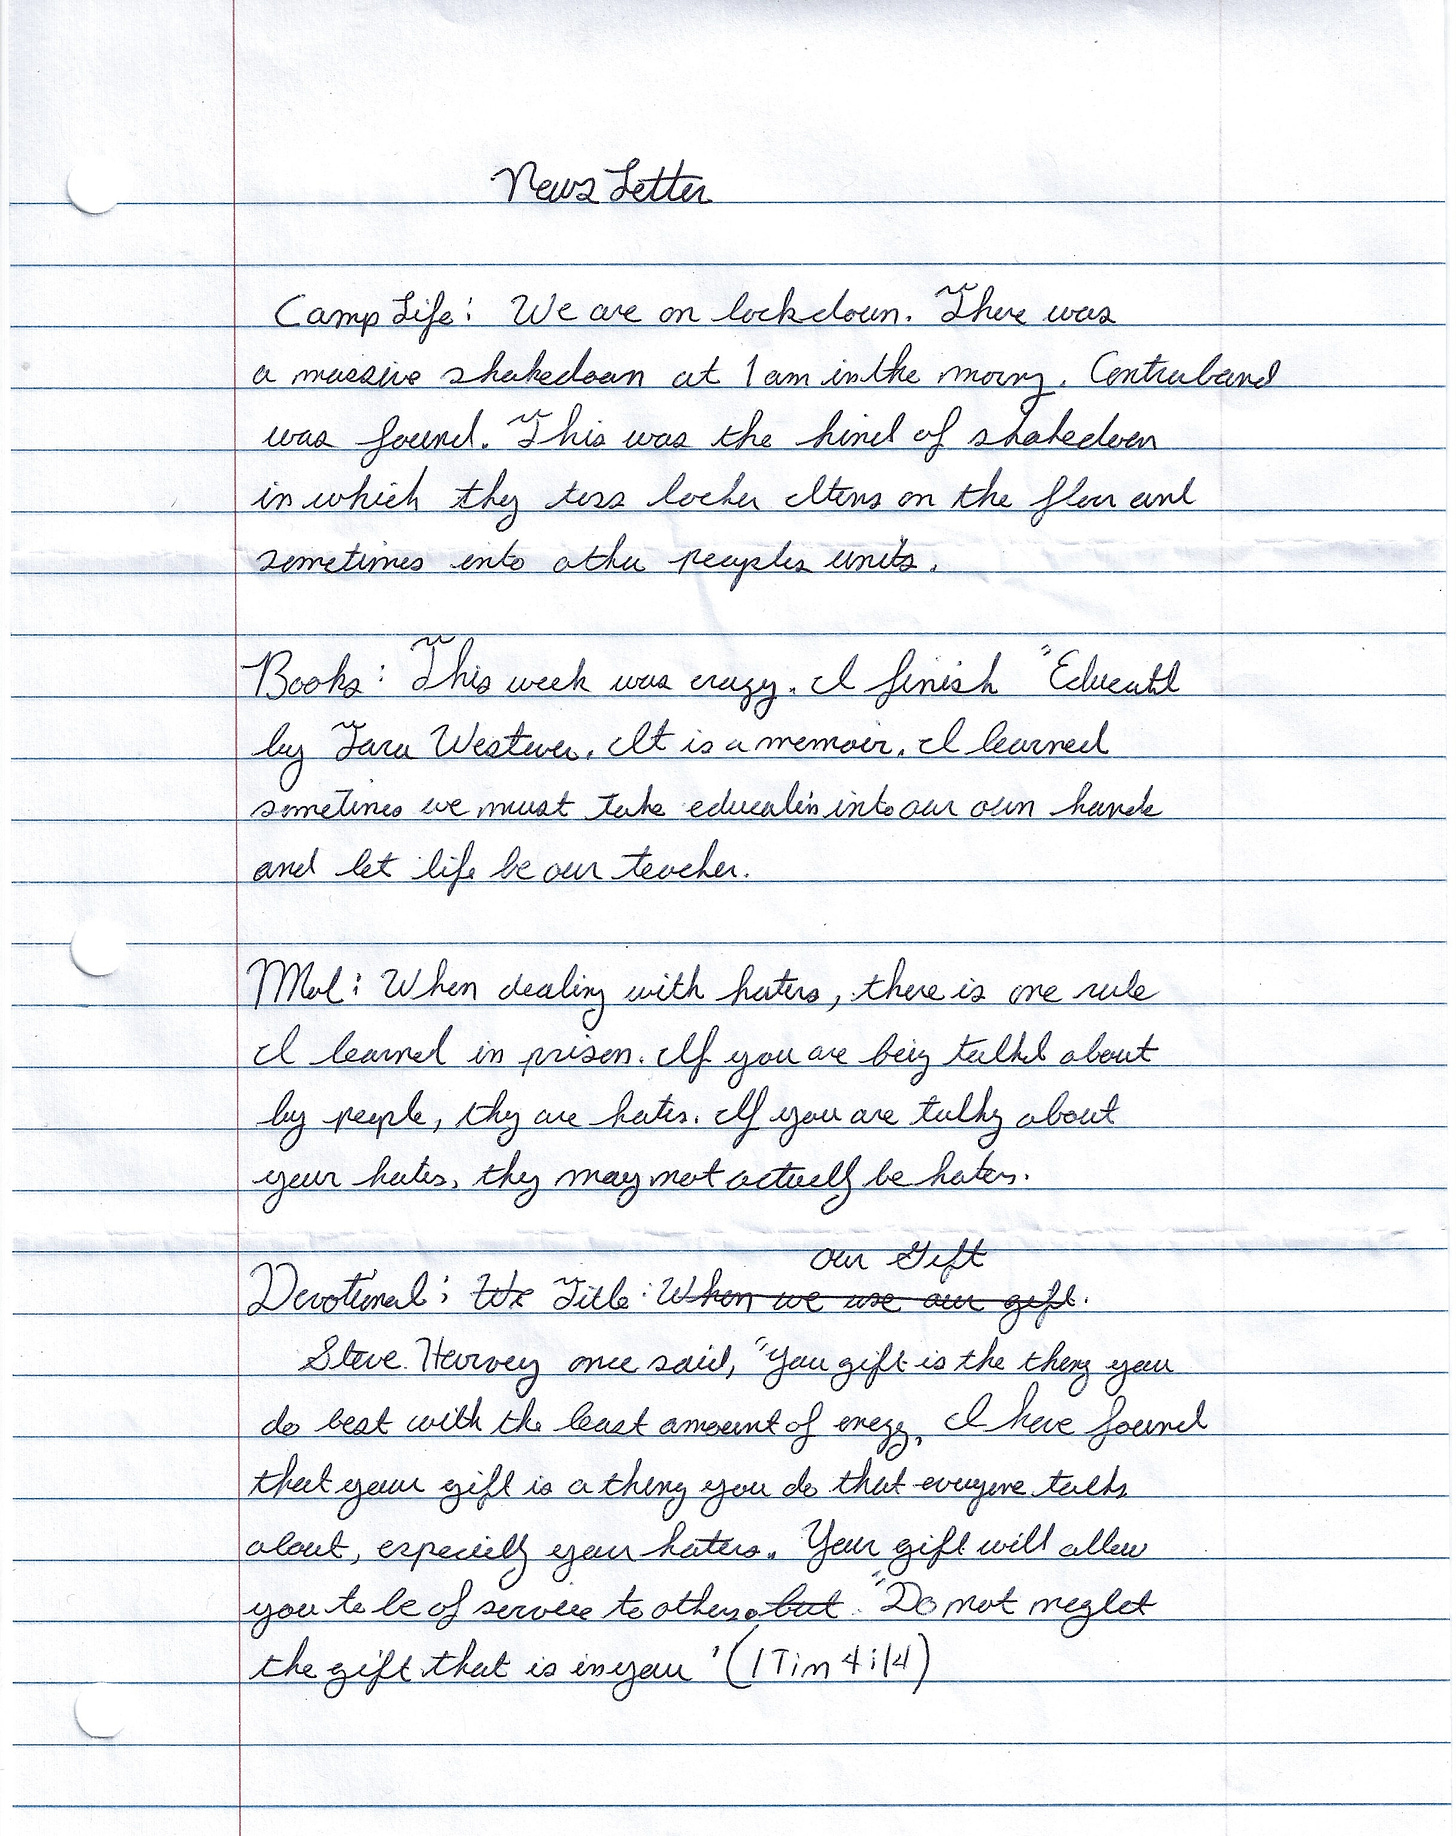 News Letter
Camp Life: We are on lockdown. There was
a massive shakedown at 1 am in the morng. Contraband
was found. This was the kind of shakedown
in which they toss locker Items on the floor and
sometimes into other peoples units.
Books: This week was crazy. I finish "Educatd
by Tara Westover. It is a memoir. I learned
sometimes we must take education into our own hands
and let life be our teacher.
When dealing with haters, there is one rule
I learned in prison. If you are being talked about
by people, they are haters. If you are talking about
your haters, they may not actually be haters.
Our Gift
Devotional: We Title: When we use our gift.
Steve Harvey once said, "You gift is the thing you
do best with the least amount of energy. I have found
that your gift is a thing you do that everyone talks
about, especially your haters. Your gift will allow
you to be of service to others. but "Do not neglect
the gift that is in you" (1 Tim 4:14)